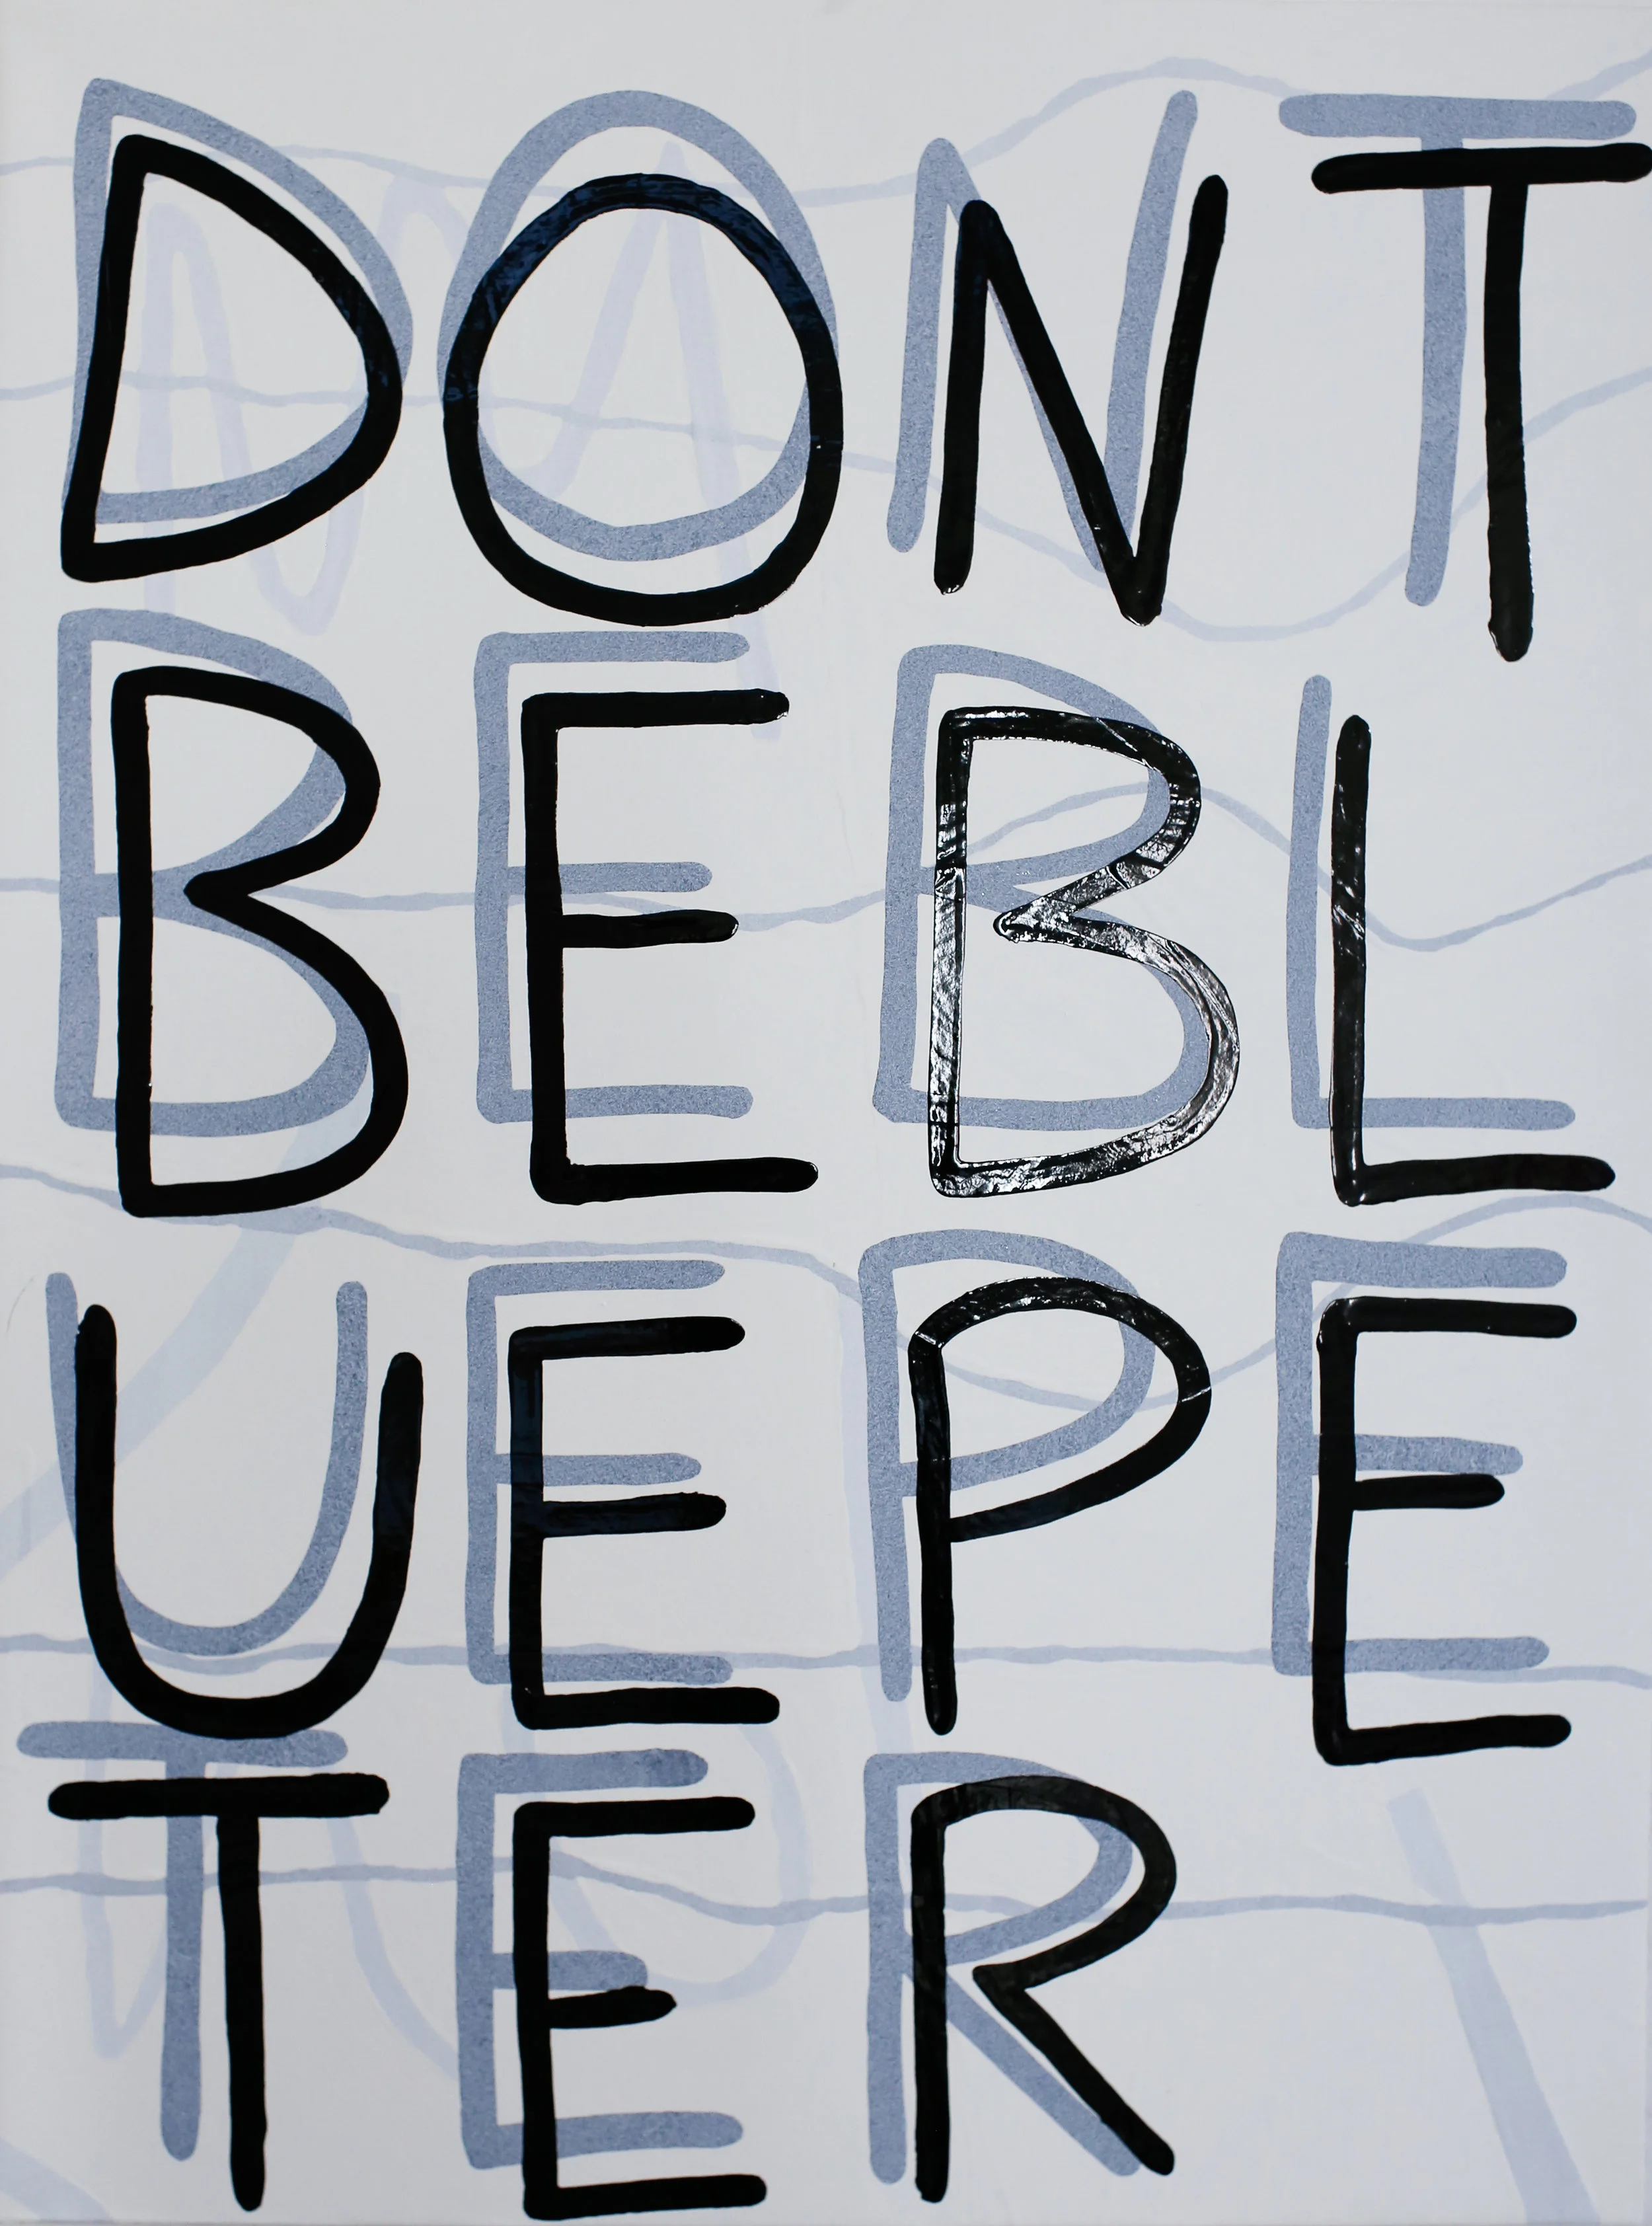 DONT
BEBL
UEPE
TER